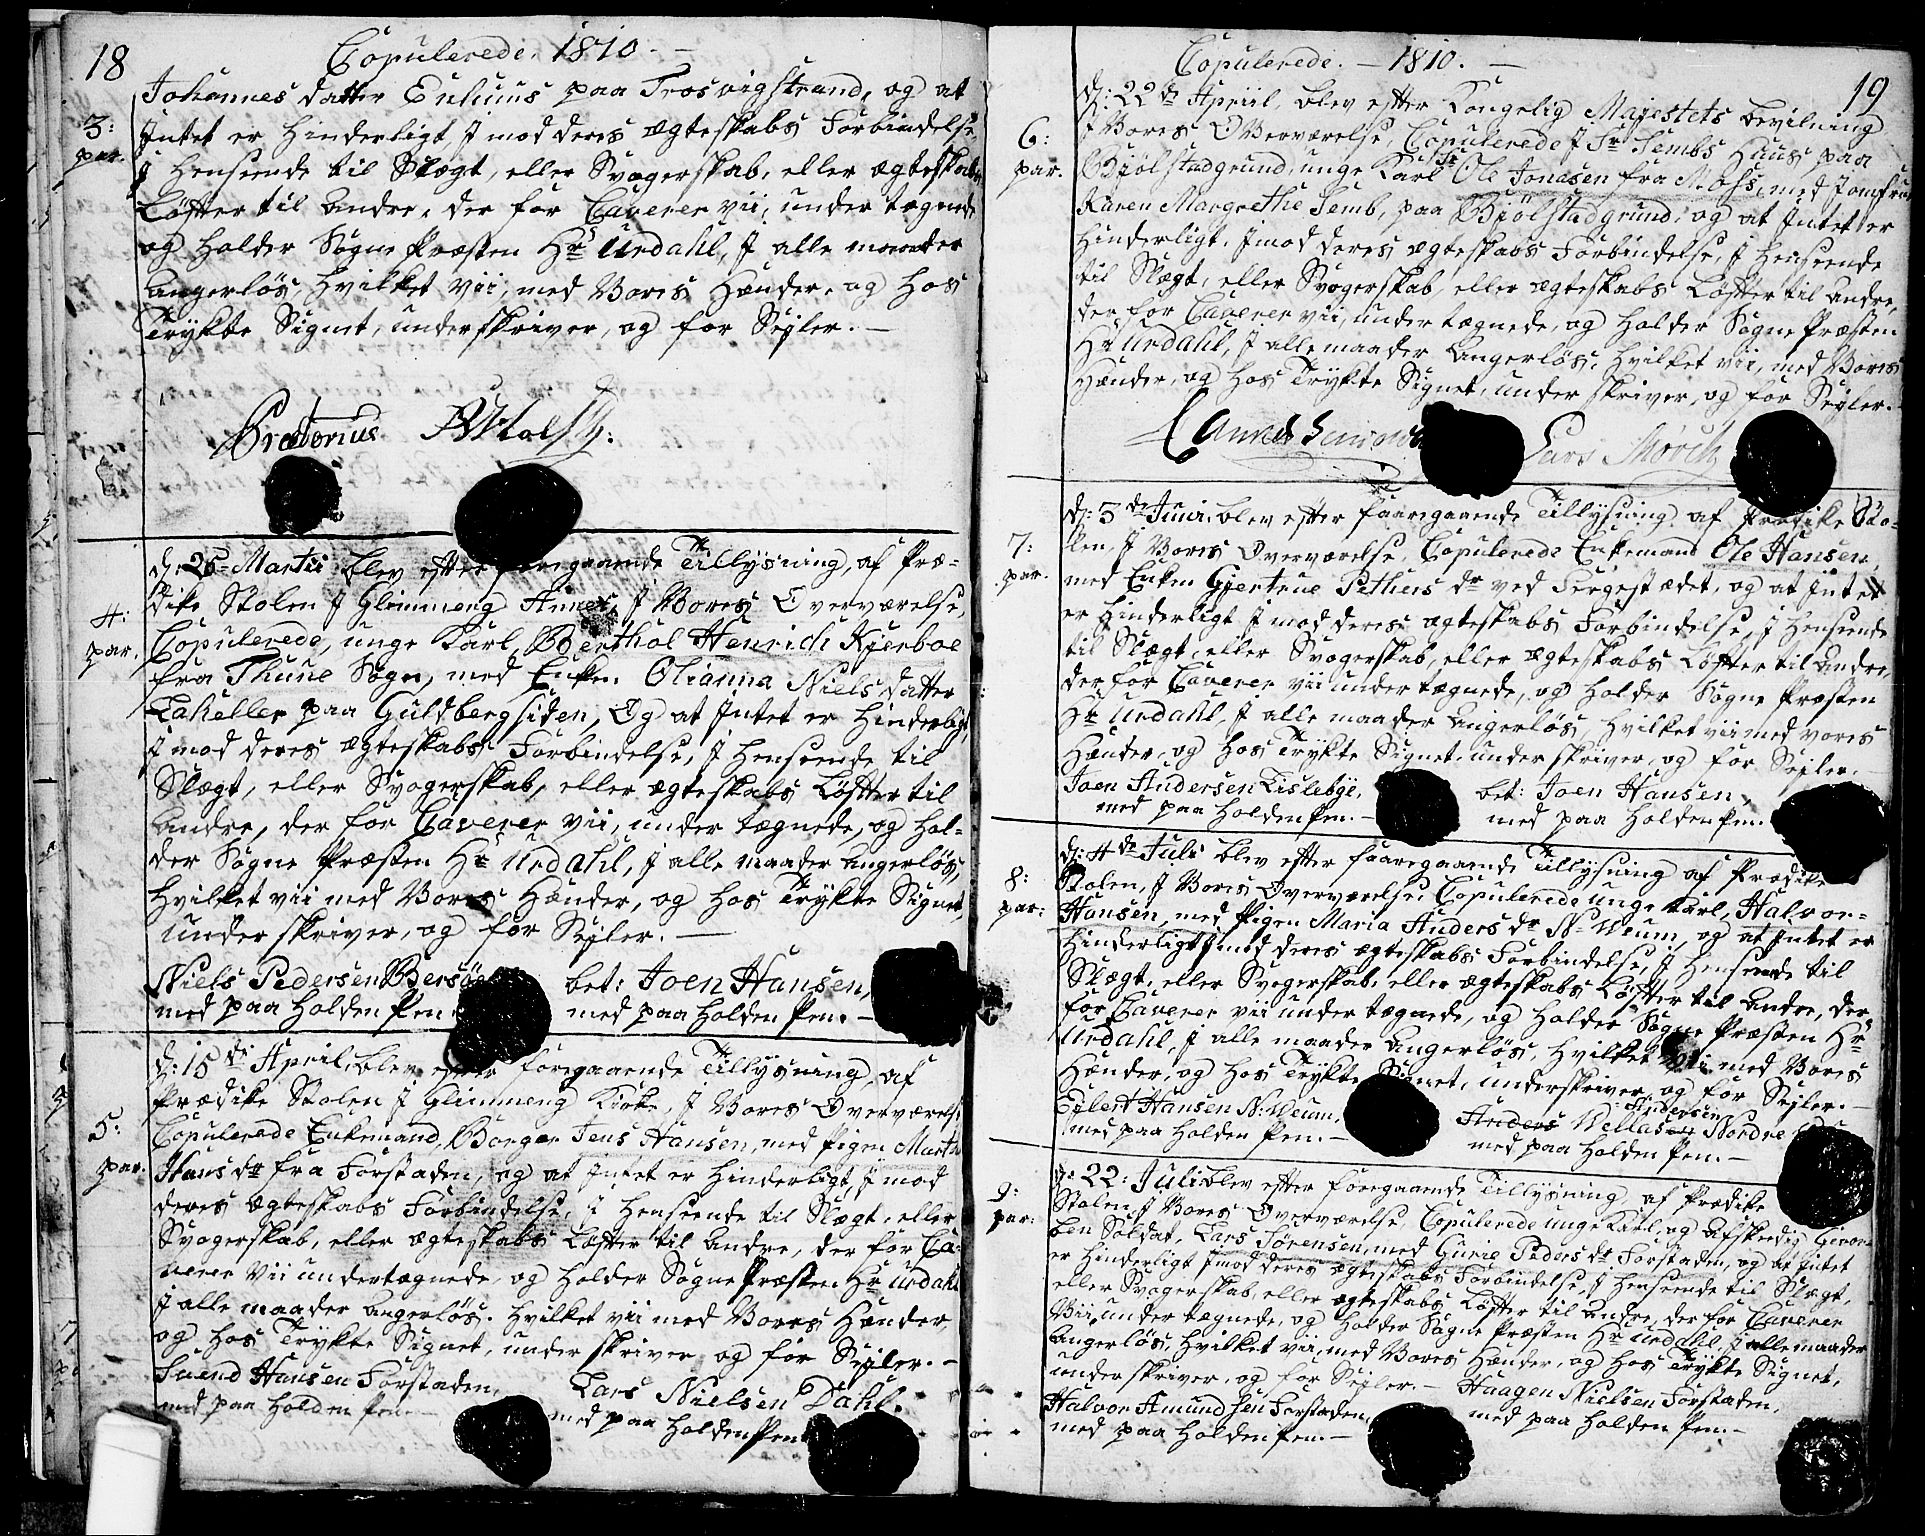 18
Copulerede. 1810. —
Johannes datter Euluus paa Trosvigstrand, og at
3:
par.
Jntet er Hinderligt J mod deres Ægteskabs Forbindelse,
J Henseende til Slægt, eller Svogerskab, eller Ægteskabs
Løfter til Andre, der for Caverer vii, under tægnede
og Holder Sogne Præsten Hr Urdahl, J alle maader
Angerløs, Hvilket vii, med Vores Hænder, og Hos
Trykte Signet, under skriver, og for Seyler. —
Bretorius
d: 25 Martii blev efter foregaaende Tillysning, af Præ-
4:
par.
dike Stolen J Glimmeng Annex, J Vores Overværelse,
Copulerede, unge Karl, Berthol Henrich Kjerboe
fra Thune Sogn, med Enken Olianna Niels datter
Lakeller paa Guldbergsiden, Og at Jntet er Hinderligt,
J mod deres Ægteskabs Forbindelse, J Henseende til
Slægt, eller Svogerskab, eller Ægteskabs Løfter til
Andre, der for Caverer vii, under tægnede, og Hol-
der Sogne Præsten Hr Urdahl, J alle maader Angerløs,
Hvilket vii med Vores Hænder, og Hos Trykte Signet,
under skriver, og for Seyler. —
Niels Pedersen Bersøe bet: Joen Hansen,
med paa Holden Pen. med paa Holden Pen. —
d: 15de April, blev efter foregaaende Tillysning, af
Prædike Stolen J Glimmeng Kirke, J Vores Overværelse
5:
par.
Copulerede Enkemand, Borger Jens Hansen, med Pigen Martha
Hans dr fra Forstaden, og at Jntet er Hinderligt, J mod
deres Ægteskabs Forbindelse, i Henseende til Slægt, eller
Svogerskab, eller Ægteskabs Løfter til Andre, der for Ca-
verer Vii undertægnede, og Holder Sogne Præsten Hr Urdahl
J alle maader Angerløs. Hvilket vii med Vores Hænder,
og Hos Trykte Signet, under skriver og for Seyler. —
Suend Hansen Forstaden, Lars Nielsen Dahl.
med paa Holden Pen. — med paa Holden Pen.
Copulerede. — 1810. —
19
d: 22de Apriil, blev efter Kongelig Majestets bevilning
6:
par.
J Vores Overværelse, Copulerede J Sr Sembs Huus paa
Bjølstadgrund, unge Karl Sr Ole Jonasen fra Moss, med Jomfru
Karen Margrethe Semb, paa Bjølstadgrund, og at Jntet er
Hinderligt, J mod deres Ægteskabs Forbindelse, J Henseende
til Slægt, eller Svogerskab, eller Ægteskabs Løfter til Andre,
der for Caverer vii, under tægnede, og Holder Sogne Præsten
Hr Urdahl, J alle maader Angerløs, Hvilket vii, med Vores
Hænder, og Hos Trykte Signet, under skriver, og for Seyler. —
Lars Mørch
d: 3de Juni, blev efter faaregaaende Tillysning, af Prædike Sto-
7:
par.
len, J Vores Overværelse, Copulerede Enkemand Ole Hansen,
med Enken Gjertrue Pethers dr ved Fergestædet, og at Jntet
er Hinderligt J mod deres Ægteskabs Forbindelse, J Henseende
til Slægt, eller Svogerskab, eller Ægteskabs Løfter til Andre,
der for Caverer vii under tægnede, og Holder Sogne Præsten
Hr Urdahl, J alle maader Angerløs, Hvilket vii med vores
Hænder, og Hos Trykte Signet, under skriver, og for Seyler.
Joen Andersen Lislebye, bet: Joen Hansen,
med paa Holden Pen. — med paa Holden Pen.
d: 4de Juli blev efter faaregaaende Tillysning af Prædike
8:
par:
Stolen, J Vores Overværelse, Copulerede unge Karl, Halvor
Hansen, med Pigen Maria Anders dr N: Veum, og at Jntet er
Hinderligt J mod deres Ægteskabs Forbindelse, J Henseende til
Slægt, eller Svogerskab, eller Ægteskabs Løfter til Andre, der
for Caverer vii under tægnede, og Holder Sogne Præsten Hr
Urdahl, J alle maader Angerløs, Hvilket vii, med Vores
Hænder, og Hos Trykte Signet, underskriver, og for Seyler. —
Andersen
Eylert Hansen N: Veum, Nordre
med paa Holden Pen. — med paa Holden Pen. —
d: 22: Juli blev efter foregaaende Tillysning af Prædike
9:
par:
Stolen, J Vores Overværelse, Copulerede unge Karl, og Afskediget Gevor-
ben Soldat, Lars Sørensen, med Gurie Peders dr Forstaden, og at Jntet
er Hinderligt J mod deres Ægteskabs Forbindelse, J Henseende til Slægt,
eller Svogerskab, eller Ægteskabs Løfter til Andre, der for Caverer
Vii, under tægnede, og Holder Sogne Præsten Hr Urdahl, J alle maader
Angerløs, Hvilket vii, med Vores Hænder, og Hos Trykte Signet,
under skriver, og for Seyler. — Haagen Nielsen Forstaden,
Halvor Amundsen Forstaden, med paa Holden Pen. —
med paa Holden Pen. —